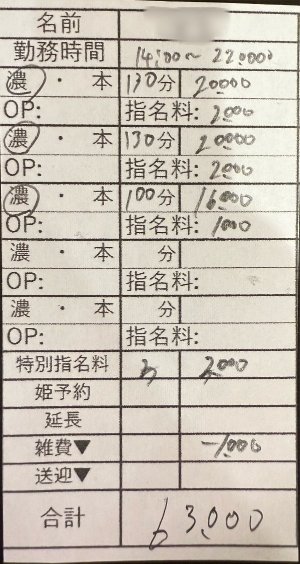 名前
勤務時間 14:00~22:00
濃・本 130分 20000
OP: 指名料: 2000
濃・本 130分 20000
OP: 指名料: 2000
濃・本 100分 16000
OP: 指名料: 1000
濃・本 分
OP: 指名料:
濃・本 分
OP: 指名料:
特別指名料 3 3,000
姫予約
延長
雑費▼ -1,000
送迎▼
合計 63,000